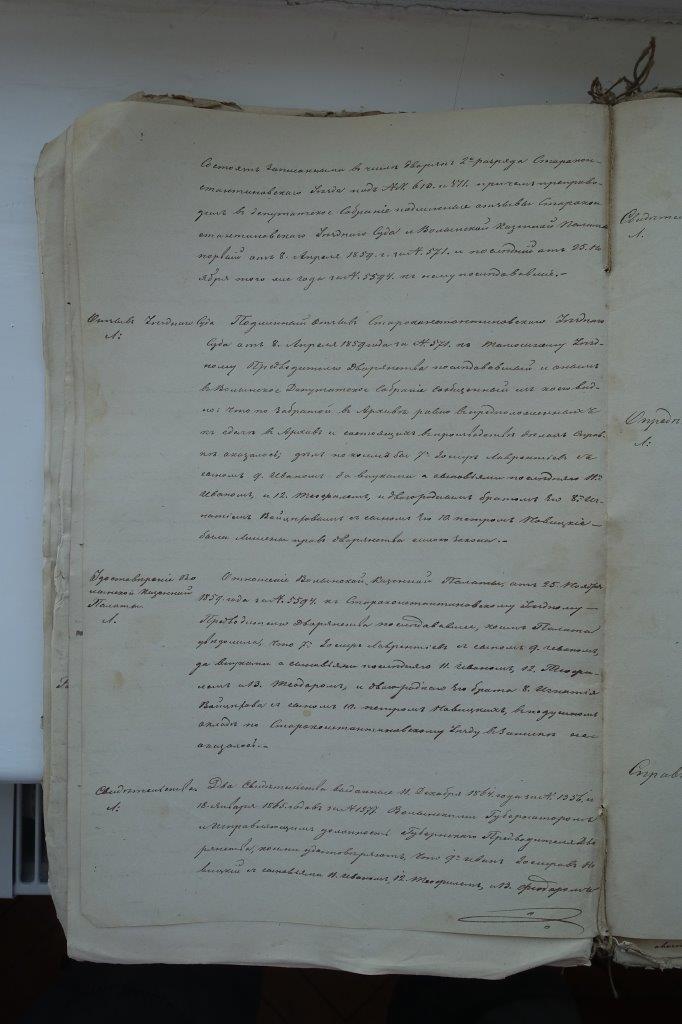 Состоятъ записанными въ число дворянъ 2й разряда Старокон-
стантиновскаго Уѣзда подъ №№ 610. и 571. причемъ препрово-
дилъ въ депутатское Собраніе подлинные отзывы Старокон
стантиновскаго Уѣзднаго Суда и Волынской Казенной Палаты
первый отъ 8. Апрѣля 1859. г. за №. 571. и послѣдній отъ 25. Но
ября того же года за №. 5594. къ нему послѣдовавшіе.-
Отзывъ Уѣзднаго Суда
№:
Подлинный отзывъ Староконстантиновскаго Уѣзднаго
Суда отъ 8. Апрѣля 1859 года за №. 571. къ Уѣзд-
ному Предводителю Дворянства послѣдовавшій и онымъ
въ Волынское Депутатское Собраніе сообщенный изъ коего вид-
но: что по забраной въ Архивѣ равно въ предположенныхъ
къ сдачѣ въ Архивъ и состоящихъ въ производствѣ дѣлахъ справ-
кѣ оказалось; дѣлъ по коимъ бы 7го Лаврентіевъ съ
сыномъ 9. Иваномъ да внуками а сыновьями послѣдняго 11го
Иваномъ, и 12. Теофилемъ, и двоюроднымъ братомъ его 8го Иг-
натіемъ съ сыномъ его 10. Петромъ Новицкіе
были лишены правъ дворянства силою закона.-
Удостовѣреніе Во
лынской Казенной
Палаты
№.
Отношеніе Волынской Казенной Палаты, отъ 25. Ноября
1859. года за №. 5594. къ Староконстантиновскому Уѣздному
Предводителю Дворянства послѣдовавшее, коимъ Палата
увѣдомила, что 7го Лаврентіевъ съ сыномъ 9. Иваномъ,
да внуками а сыновьями послѣдняго 11. Иваномъ, 12. Теофи-
лемъ и 13. Теодоромъ, и двоюроднаго его брата 8. Игнатія
съ сыномъ 10. Петромъ Новицкихъ, въ подушномъ
окладѣ по Староконстантиновскому Уѣзду въ записи не
оказалось.-
Свидѣтельства
№:
Два Свидѣтельства выданные 11. Декабря 1864 года за №. 1356. и
18. Января 1865. годовъ за № 1377 Волынскимъ Губернаторомъ
и Исправляющимъ должность Губернскаго Предводителя Дво
рянства, коими удостовѣряютъ, что 9го Иванъ Но
вицкій съ сыновьями 11. Иваномъ, 12. Теофилемъ, и 13. Ѳеодоромъ
Свидѣтел
№.
Опредѣ
№:
Справ